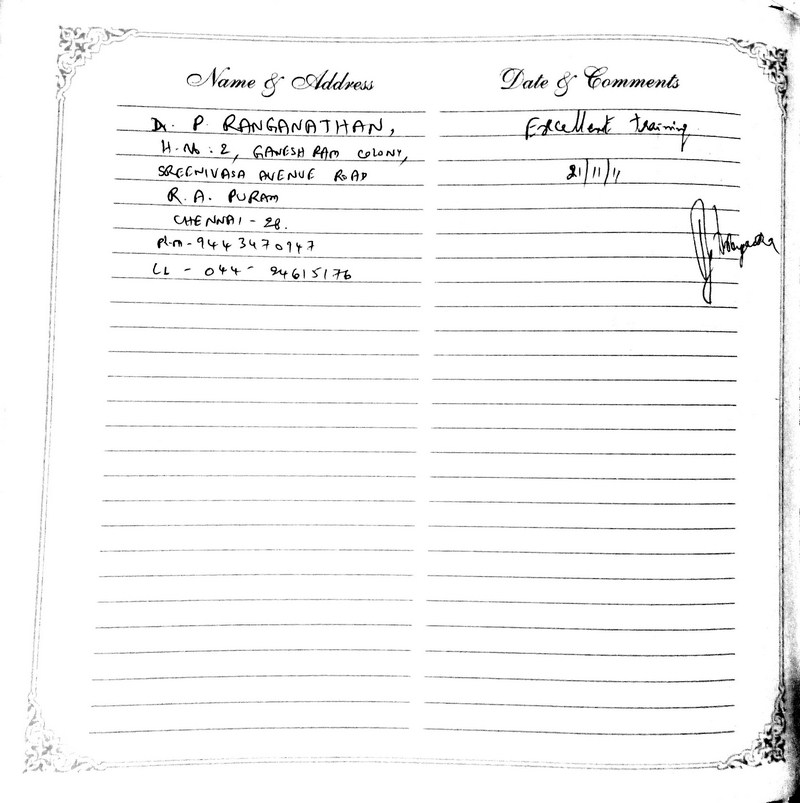 Name & Address
Dr. P. RANGANATHAN,
H.No: 2, GANESH RAM COLONY,
SREENIVASA AVENUE ROAD
R. A. PURAM
CHENNAI - 28.
ph.m - 9443470947
LL - 044 - 24615176
Date & Comments
Excellent training
21/11/11